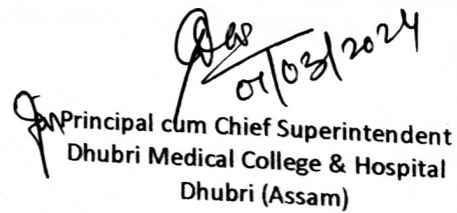 Das
01/03/2024
For Principal cum Chief Superintendent
Dhubri Medical College & Hospital
Dhubri (Assam)